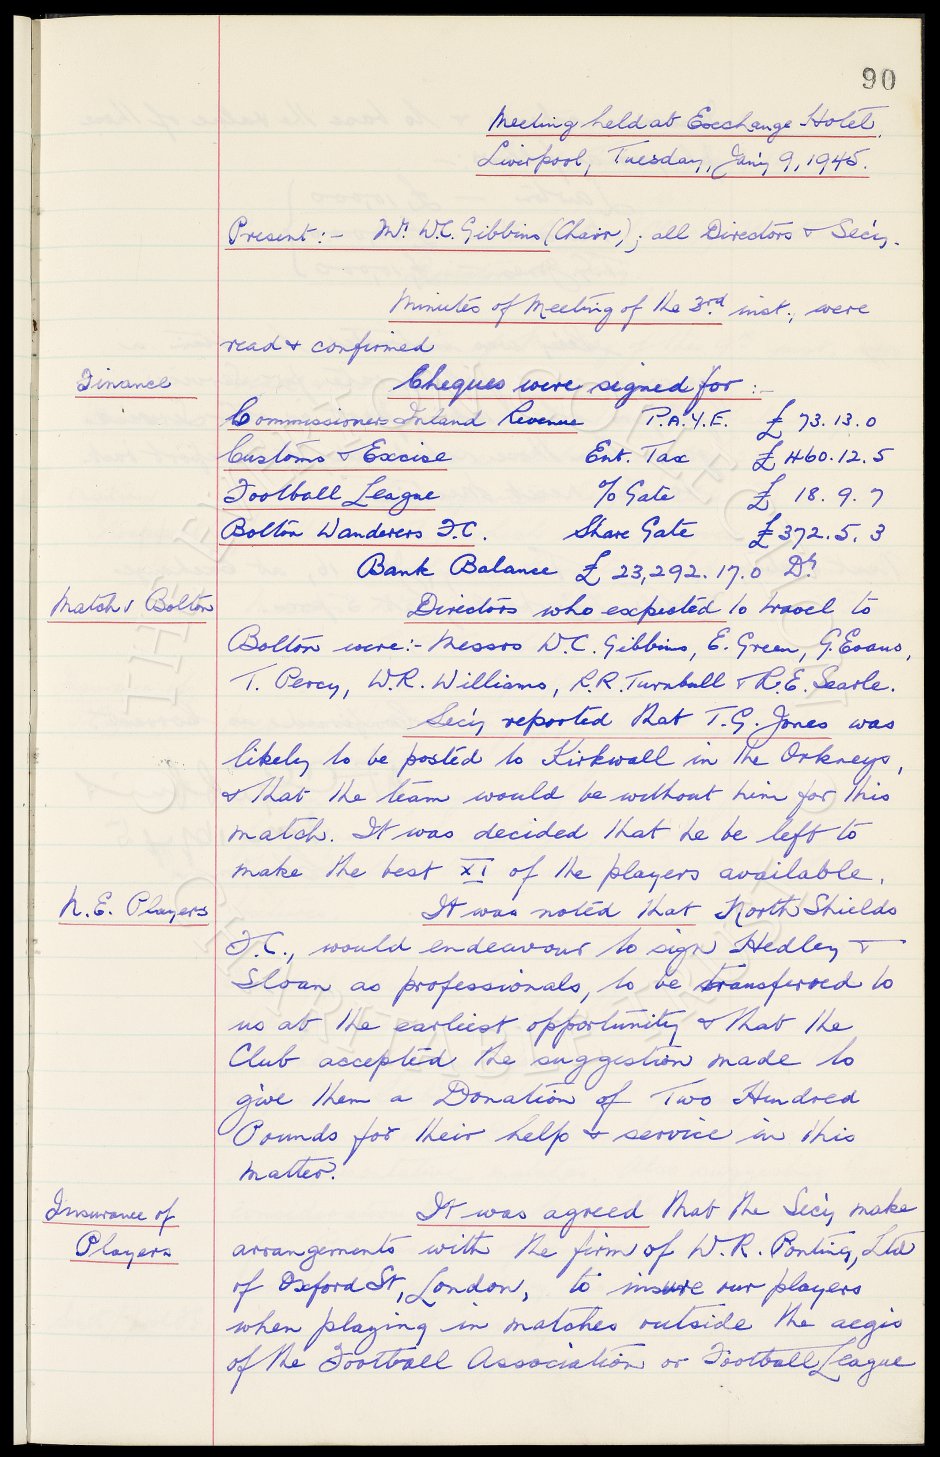 90
Meeting held at Exchange Hotel,
Liverpool, Tuesday, Jan'y 9, 1945.
Present:- Mr W.C. Gibbins (Chair); all Directors & Sec'y.
Minutes of Meeting of the 3rd inst., were
read & confirmed
Finance
Cheques were signed for :-
Commissioners Inland Revenue P.A.Y.E. £ 73.13.0
Customs & Excise Ent. Tax £ 460.12.5
Football League % Gate £ 18.9.7
Bolton Wanderers F.C. Share Gate £ 372.5.3
Bank Balance £ 23,292.17.0 Dr
Match v Bolton
Directors who expected to travel to
Bolton were:- Messrs W.C. Gibbins, E. Green, G. Evans,
T. Percy, W.R. Williams, R.R. Turnbull & R.E. Searle.
Sec'y reported that T.G. Jones was
likely to be posted to Kirkwall in the Orkneys,
& that the team would be without him for this
match. It was decided that he be left to
make the best XI of the players available.
N.E. Players
It was noted that North Shields
F.C., would endeavour to sign Hedley &
Sloan as professionals, to be transferred to
us at the earliest opportunity & that the
Club accepted the suggestion made to
give them a Donation of Two Hundred
Pounds for their help & service in this
matter.
Insurance of
Players
It was agreed that the Sec'y make
arrangements with the firm of W.R. Ponting, Ltd
of Oxford St, London, to insure our players
when playing in matches outside the aegis
of the Football Association or Football League